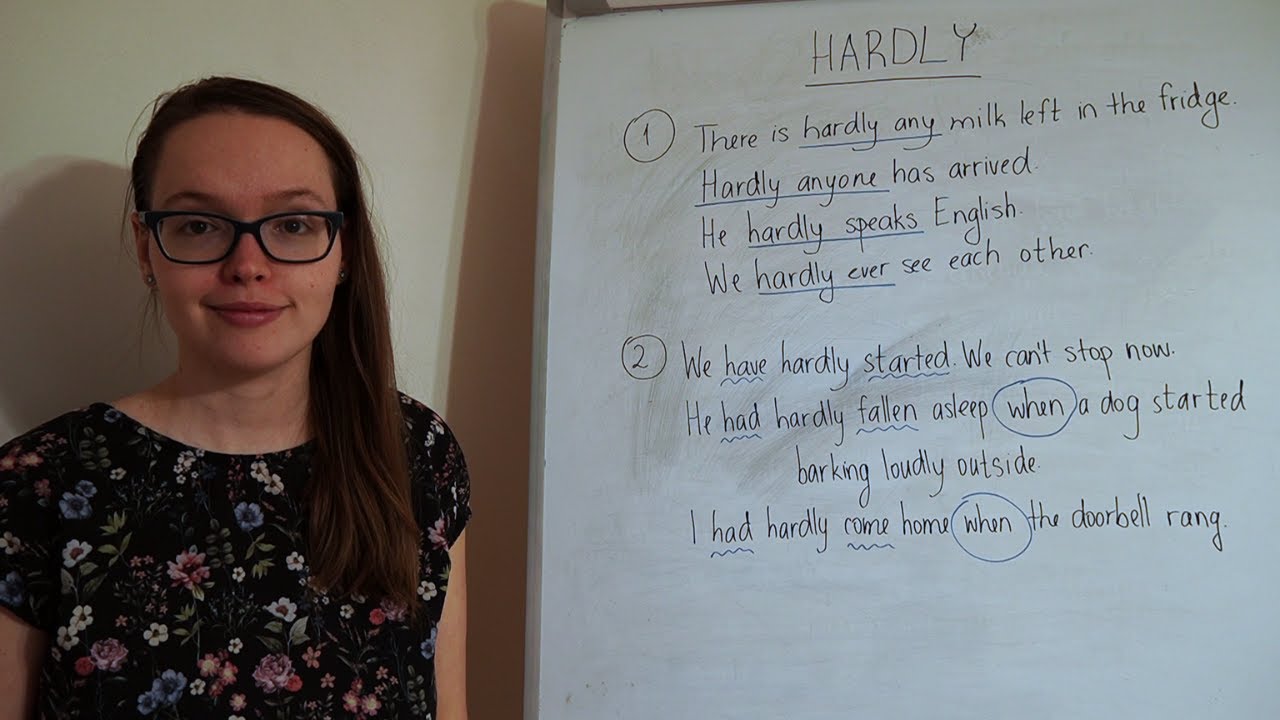 HARDLY
1 There is hardly any milk left in the fridge.
Hardly anyone has arrived.
He hardly speaks English.
We hardly ever see each other.
2 We have hardly started. We can't stop now.
He had hardly fallen asleep when a dog started
barking loudly outside.
I had hardly come home when the doorbell rang.